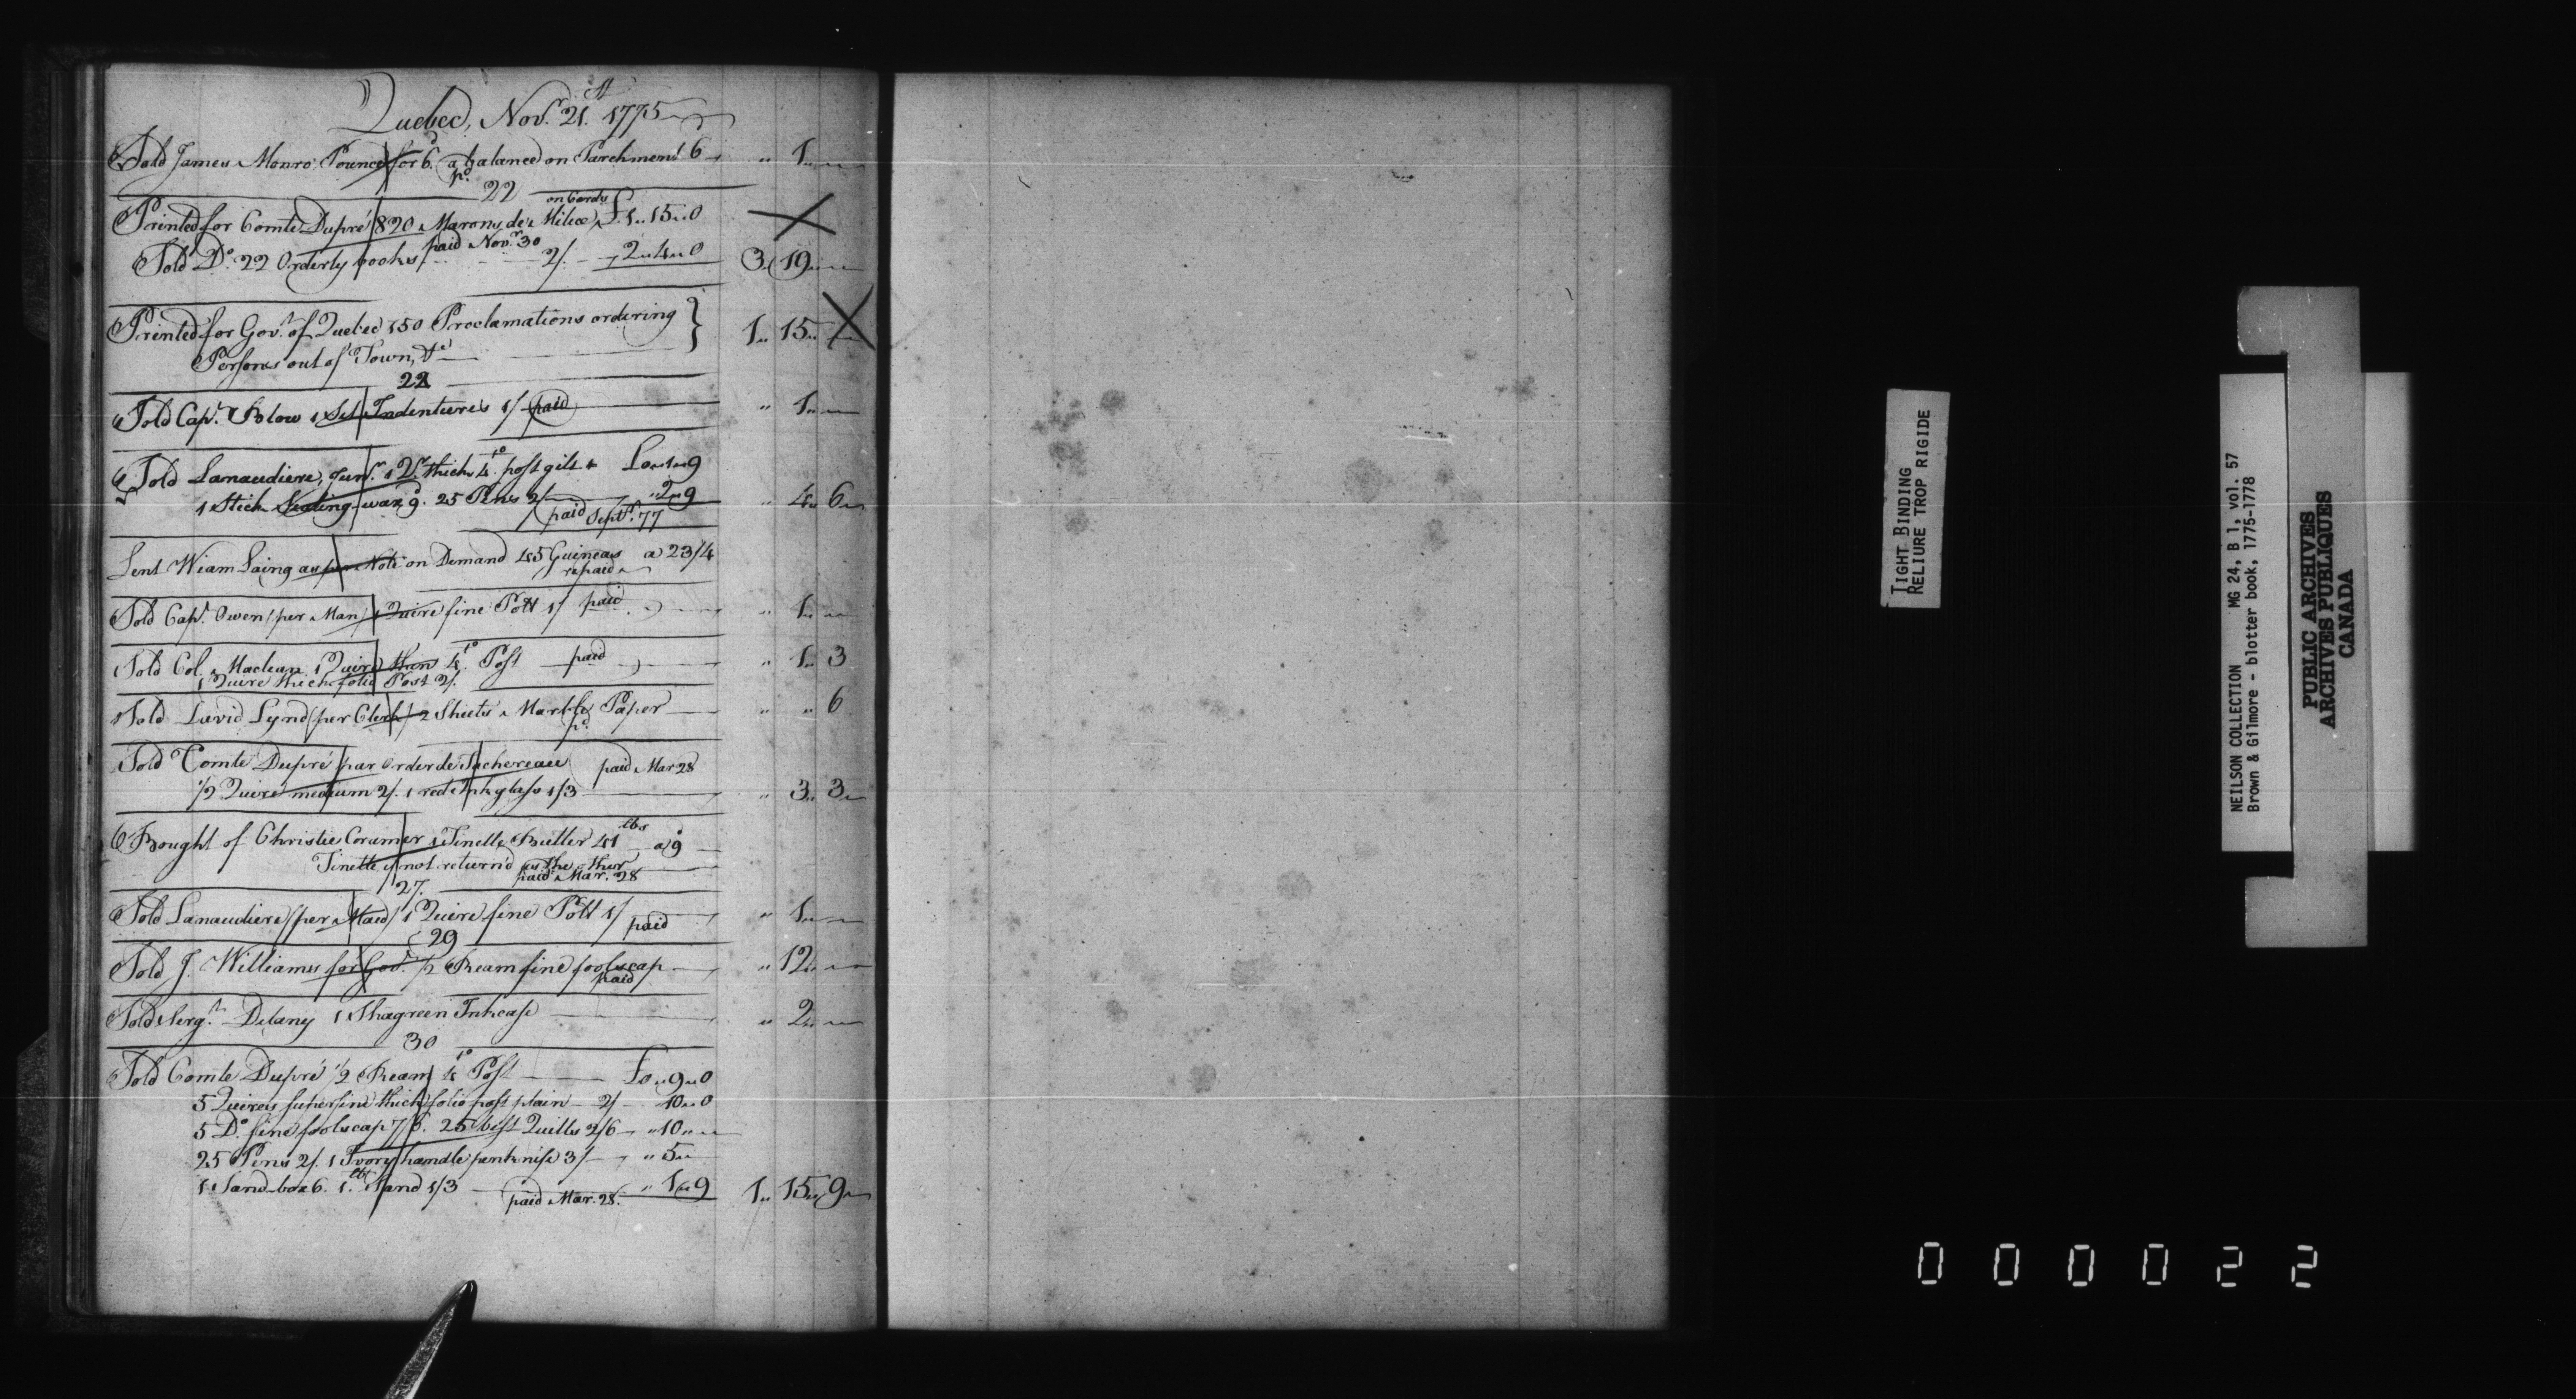 Quebec, Nov.r 21.st 1775
Sold James Monro Pounce for 6.d a balance on Parchment 6 " 1 " —
pd.
22
on Cards
Printed for Comte Dupré 820 Marons de Milice £1 " 15 " 0
paid Nov.r 30
Sold Do. 22 Orderly books 2/. 2 " 4 " 0 3 " 19 " —
Printed for Gov.t of Quebec 150 Proclamations ordering } 1 " 15 " —
Persons out of Town, &c
22
Sold Cap.t Blow 1 Set Indentures 1/ paid " 1 " —
Sold Lanaudiere, Junr. 1 Qr. thick 4.to post gilt £0 " 1 " 9
1 Stick Sealing wax 9. 25 Pens 2/ " 2 " 9 " 4 " 6
paid Septr. 77
Lent Wiam Laing as per Note on Demand 45 Guineas a 23/4
repaid
Sold Capt. Owen (per Man) 1 Quire fine Pott 1/ paid " 1 " —
Sold Col. Maclean 1 Quire thin 4.to Post paid " 1 " 3
1 Quire thick folio Post 2/.
Sold David Lynd (per Clerk) 2 Sheets Marble Paper " " 6
pd.
Sold Comte Dupré par Order de Juchereau paid Mar 28
1/2 Quire medium 2/. 1 red Ink glass 1/3 " 3 " 3
Bought of Christie Cramer 1 Tinette Butter 41 lbs a 9
Tinette if not return'd
paid Mar. 28
27.
Sold Lanaudiere (per Maid) 1 Quire fine Pott 1/ paid " 1 " —
29
Sold J. Williams for Gov.t 1/2 Ream fine foolscap " 12 " —
paid
Sold Serg.t Delany 1 Shagreen Inkcase " 2 " —
30
Sold Comte Dupré 1/2 Ream 4.to Post £0 " 9 " 0
5 Quires superfine thick folio post plain 2/ 10 " 0
5 Do. fine foolscap 7/6. 25 best Quills 2/6 " 10 " —
25 Pens 2/. 1 Ivory handle penknife 3/ " 5 "
1 Sand-box 6. 1.lb Sand 1/3 " 1 " 9 1 " 15 " 9
paid Mar. 28.
TIGHT BINDING
RELIURE TROP RIGIDE
NEILSON COLLECTION MG 24, B 1, vol. 57
Brown & Gilmore - blotter book, 1775-1778
PUBLIC ARCHIVES
ARCHIVES PUBLIQUES
CANADA
000022